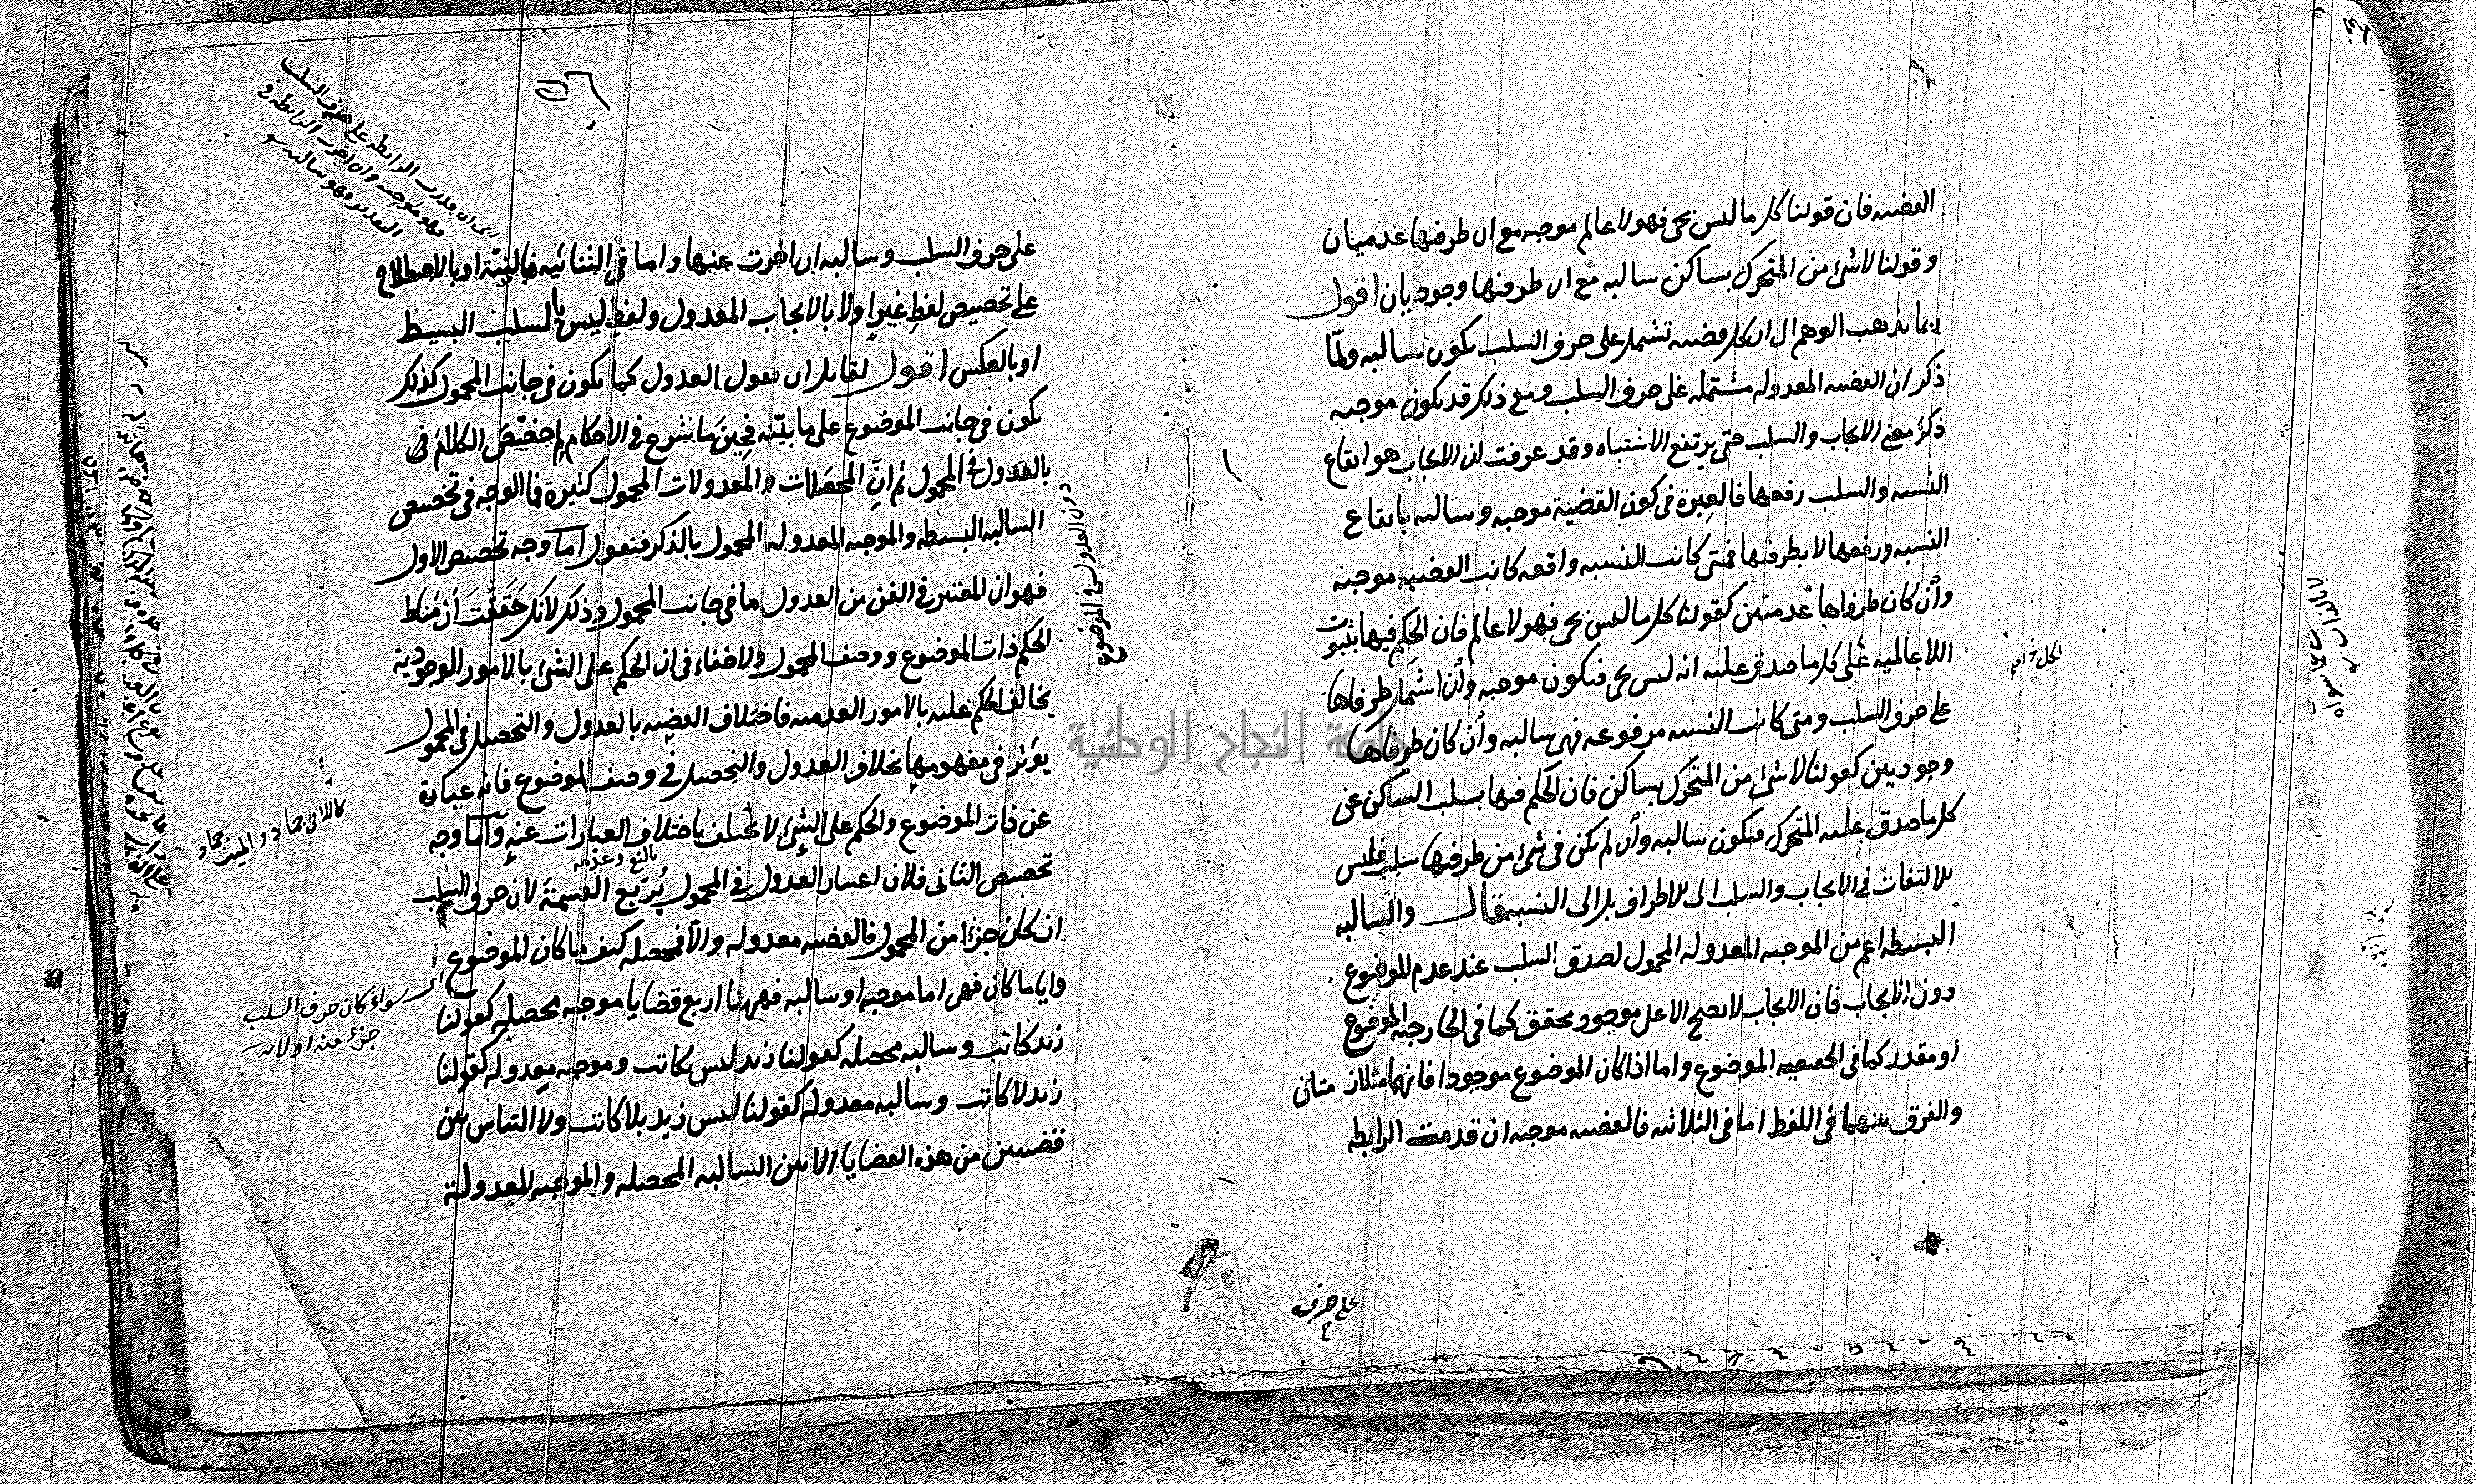 القضيه فان قولنا كل ما ليس بحى فهو لا عالم موجبه مع ان طرفيها عدميان
وقولنا لا شئ من المتحرك بساكن سالبه مع ان طرفيها وجوديان اقول
ربما يذهب الوهم الى ان كل قضيه تشتمل على حرف السلب يكون سالبه ولمّا
ذكر ان القضيه المعدوله مشتمله على حرف السلب ومع ذلك قد يكون موجبه
ذكر معنى الايجاب والسلب حتى يرتفع الاشتباه وقد عرفت ان الايجاب هو ايقاع
النسبه والسلب رفعها فالعبرة فى كون القضية موجبه وسالبه بايقاع
النسبه ورفعها لا بطرفيها فمتى كانت النسبه واقعه كانت القضيه موجبه
وأن كان طرفاها عدميين كقولنا كل ما ليس بحى فهو لا عالم فان الحكم فيها بثبوت
اللاعالميه على كل ما صدق عليه انه ليس بحى فيكون موجبه وأن اشتمل طرفاها
على حرف السلب ومتى كانت النسبه مرفوعه فهى سالبه وأن كان طرفاها
وجوديين كقولنا لا شئ من المتحرك بساكن فان الحكم فيها بسلب الساكن عن
كل ما صدق عليه المتحرك فيكون سالبه وأن لم يكن فى شئ من طرفيها سلب فليس
للالتفات فى الايجاب والسلب الى للاطراف بل الى النسبه قال والسالبه
البسيطه اعم من الموجبه المعدوله المحمول لصدق السلب عند عدم الموضوع
دون الايجاب فان الايجاب لا يصح الا على موجود محقق كما فى الخارجية الموضوع
او مقدر كما فى الحقيقيه الموضوع واما اذا كان الموضوع موجودا فانهما متلازمتان
والفرق بينهما فى اللفظ اما فى الثلاثيه فالقضيه موجبه ان قدمت الرابطه
على حرف
على حرف السلب وسالبه ان اخرت عنها واما فى الثنائيه فبالنية او بالاصطلاح
على تخصيص لفظ غير او لا بالايجاب المعدول ولفظ ليس بالسلب البسيط
او بالعكس اقول لقايل ان يقول العدول كما يكون فى جانب المحمول كذلك
يكون فى جانب الموضوع على ما بيّنه فحين ما شرع فى الاحكام لم خصّص الكلام فى
بالعدول فى المحمول ثم انّ المحصّلات والمعدولات المحمول كثيرة فما الوجه فى تخصيص
السالبه البسيطه والموجبه المعدوله المحمول بالذكر فنقول اما وجه تخصيص الاول
فهو ان المعتبر فى الفن من العدول ما فى جانب المحمول وذلك لانك حققت أن مناط
الحكم ذات الموضوع ووصف المحمول ولا خفاء فى ان الحكم على الشئ بالامور الوجودية
يخالف الحكم عليه بالامور العدميه فاختلاف القضيه بالعدول والتحصيل فى المحمول
يؤثر فى مفهومها بخلاف العدول والتحصيل فى وصف الموضوع فانه عبارة
عن ذات الموضوع والحكم على الشئ لا يختلف باختلاف العبارات عنه وأما وجه
تخصيص الثانى فلان اعتبار العدول فى المحمول يُرَبّع القسمة لان حرف السلب
ان كان جزءا من المحمول فالقضيه معدوله والا فمحصله كيف ما كان الموضوع
وايا ما كان فهى اما موجبه او سالبه فههنا اربع قضايا موجبه محصله كقولنا
زيد كاتب وسالبه محصله كقولنا زيد ليس بكاتب وموجبه معدوله كقولنا
زيد لا كاتب وسالبه معدوله كقولنا ليس زيد بلا كاتب ولا التباس بين
قضيتين من هذه القضايا الا بين السالبه المحصله والموجبه المعدولة
دون العدول فى الموضوع
سواء كان حرف السلب
جزء منه او لا
جامعة النجاح الوطنية